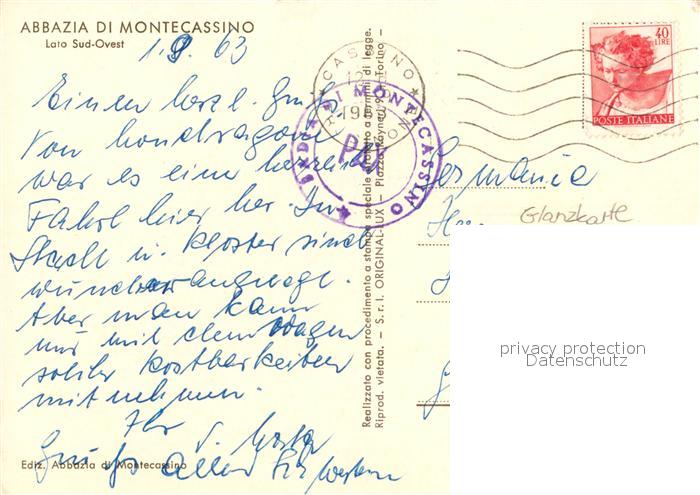 ABBAZIA DI MONTECASSINO
Lato Sud-Ovest
1.9.63
Einen herzl. Gruß
Von
war es eine herrliche
Fahrt hier her. Die
Stadt u. Kloster sind
angelegt.
Aber man kann
nur mit dem Wagen
solche Kostbarkeiten
mitnehmen.
Ihr
Grüße allen
Ediz. Abbazia di Montecassino
Realizzato con procedimento a stampa speciale a termini di legge.
Riprod. vietata. - S.r.l. ORIGINAL-LUX - Piazza Rayneri, - Torino -
CASSINO
BADIA DI MONTECASSINO
40
LIRE
POSTE ITALIANE
Germania
Glanzkarte
privacy protection
Datenschutz